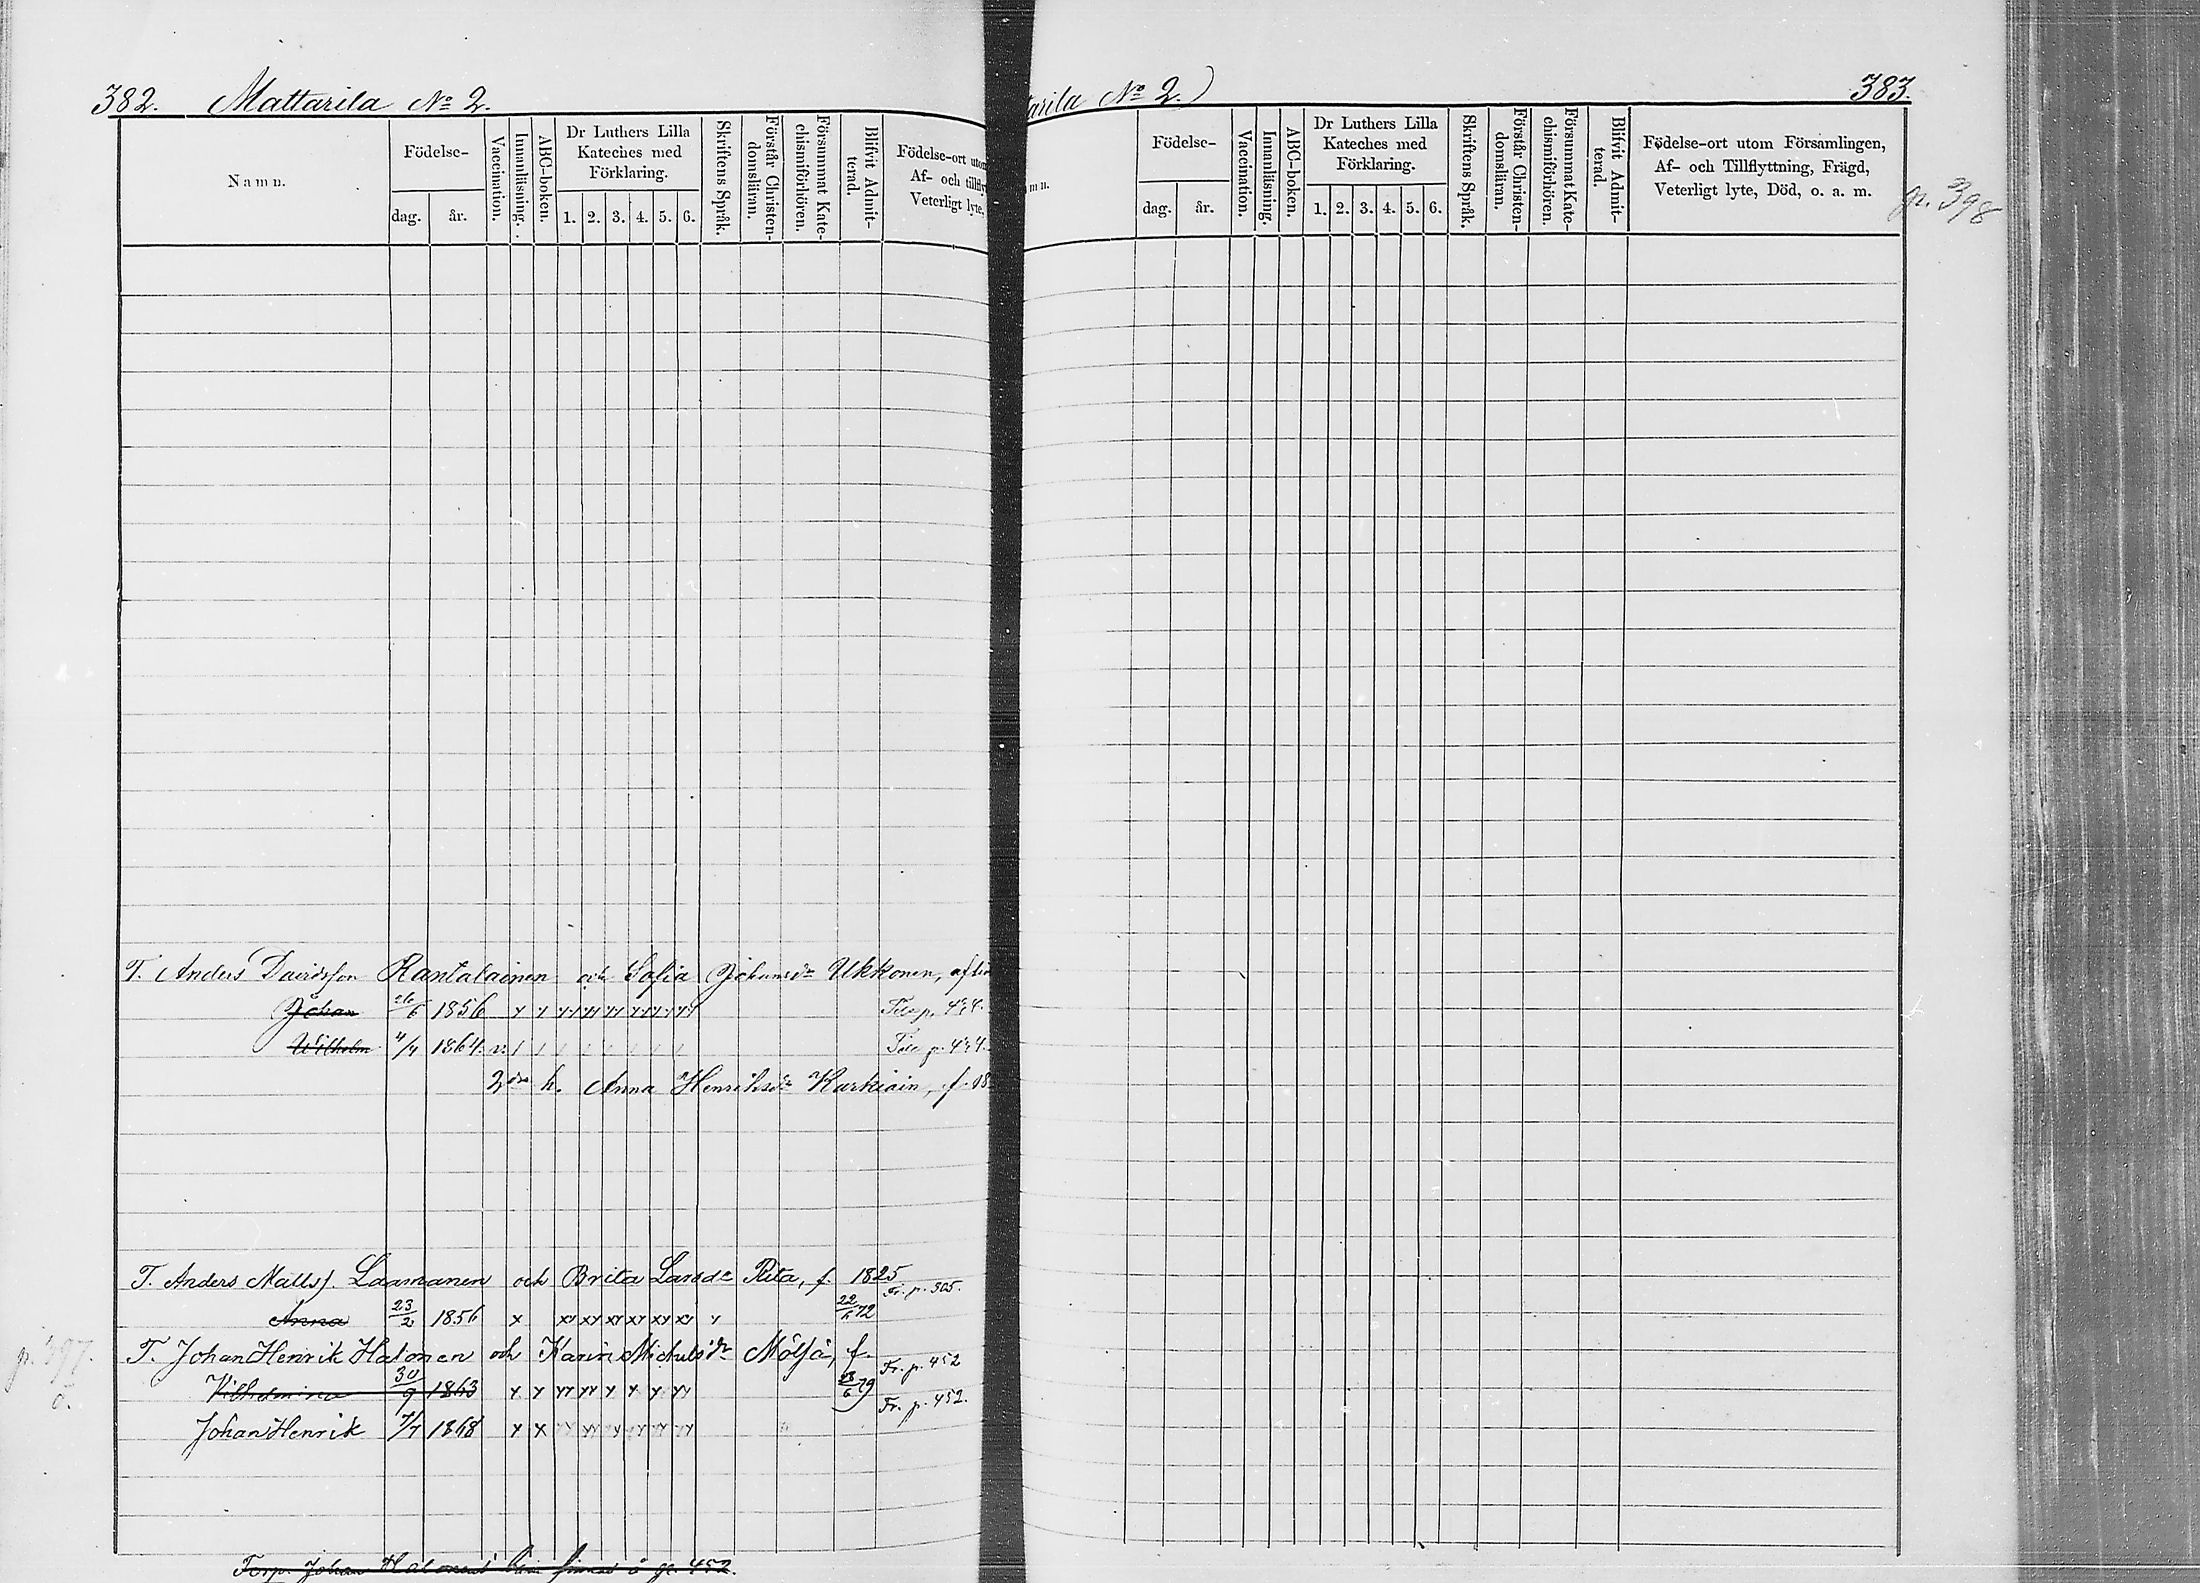 382. Mattarila No 2.
Namn.
Födelse-
dag. år.
Vaccination.
Innanläsning.
ABC-boken.
Dr Luthers Lilla
Kateches med
Förklaring.
1. 2. 3. 4. 5. 6.
Skriftens Språk.
Förstår Christen-
domsläran.
Försummat Kate-
chismiförhören.
Blifvit Admit-
terad.
Födelse-ort utom
Af- och tillfly
Veterligt lyte,
T. Anders Davidsson Rantalainen och Sofia Johansdr Ukkonen,
Johan 26/6 1856
Wilhelm 4/4 1864. v.
2dra h. Anna Henriksdr Kurkiain, f. 18
T. Anders Mattss. Laamanen och Brita Larsdr Pita, f. 1825
Fr. p. 305.
Anna 23/2 1856 x 22/6 72
T. Johan Henrik Halonen och Karin Michelsdr Mölsä, f.
Fr. p. 452
Vilhelmina 30/9 1863 79
Fr. p. 452.
Johan Henrik 7/7 1868
Torp. Johan Halonens finnes å p. 452.
p. 397.
ö.
arila No 2.)
383.
mn.
Födelse-
dag. år.
Vaccination.
Innanläsning.
ABC-boken.
Dr Luthers Lilla
Kateches med
Förklaring.
1. 2. 3. 4. 5. 6.
Skriftens Språk.
Förstår Christen-
domsläran.
Försummat Kate-
chismiförhören.
Blifvit Admit-
terad.
Födelse-ort utom Församlingen,
Af- och Tillflyttning, Frägd,
Veterligt lyte, Död, o. a. m.
p. 398